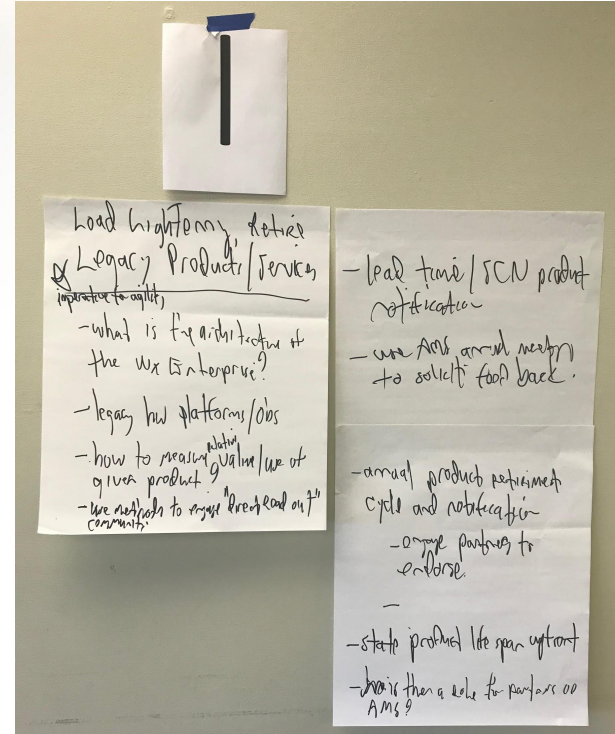 Load Lightening, Retire
Legacy Products/Services
imperative to agility
-what is the architecture of
the Wx Enterprise?
-legacy hw platforms/obs
-how to measure relative value/use of
given product?
-use methods to engage "direct read out"
community.
-lead time/SCN product
notification
-use AMS annual meeting
to solicit feed back.
-annual product retirement
cycle and notification
-engage partners to
endorse.
-
-state product life span upfront
-is there a role for partners or
AMS?